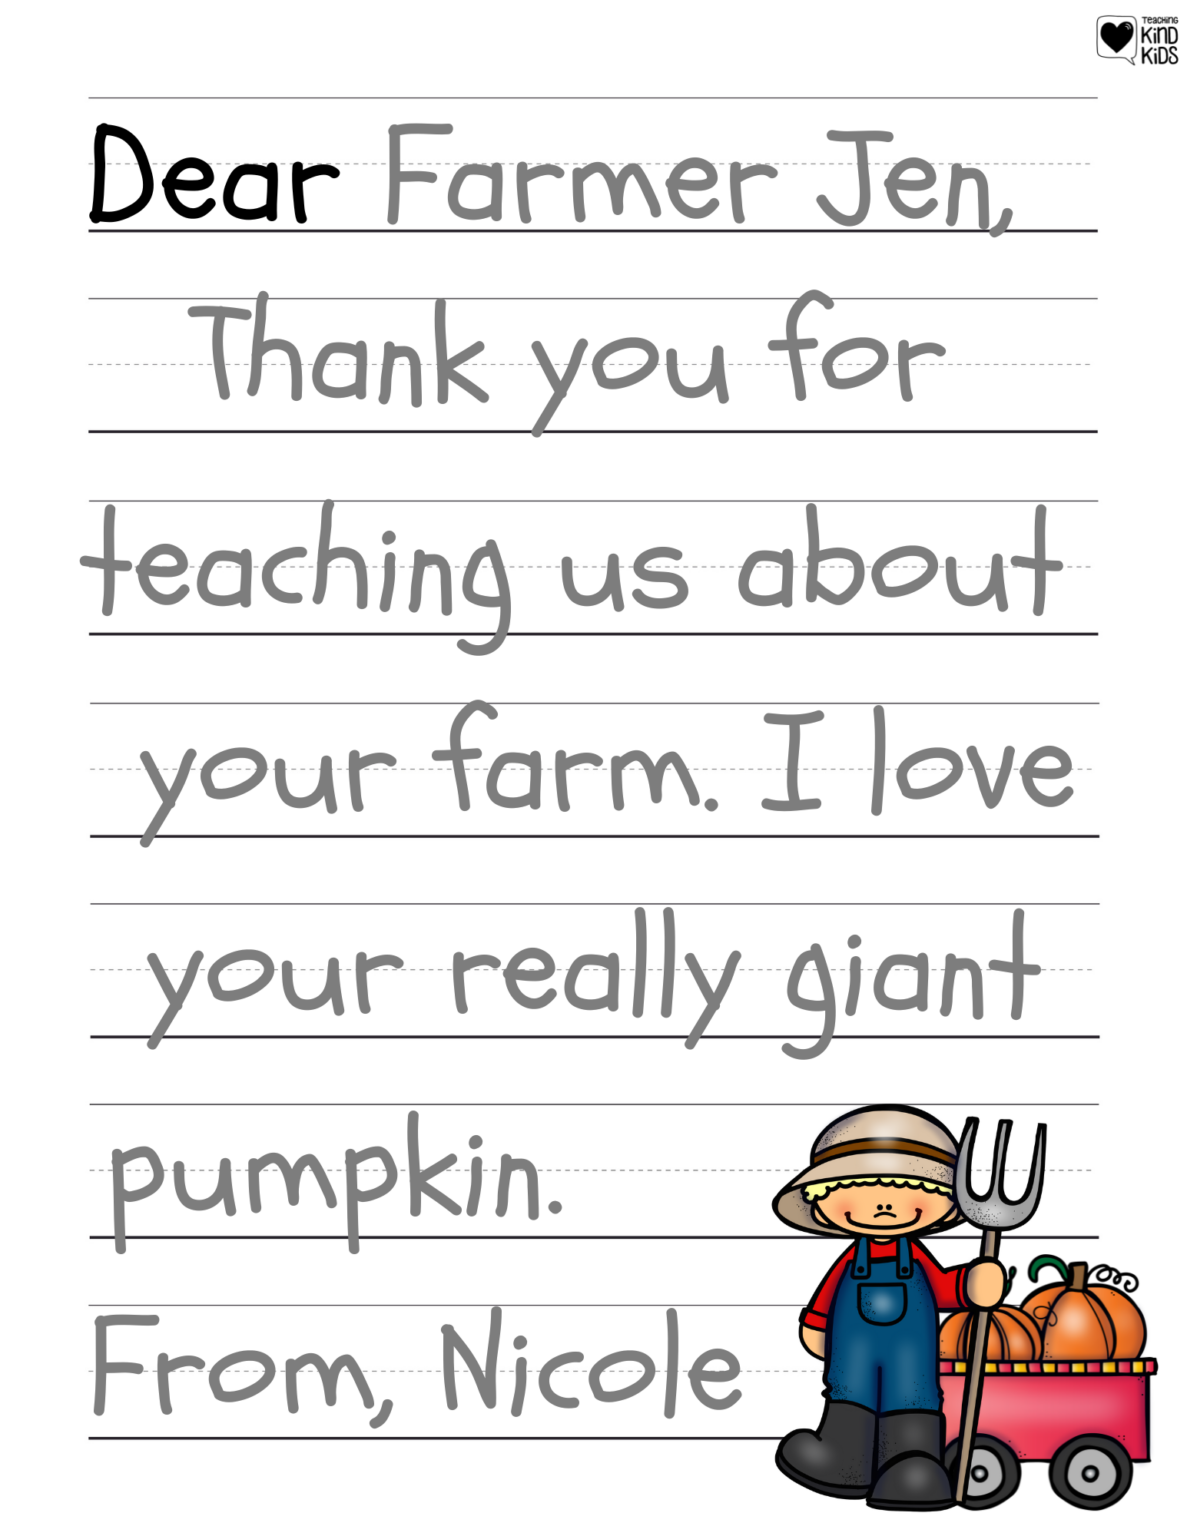 TEACHING
KIND
KIDS
Dear Farmer Jen,
Thank you for
teaching us about
your farm. I love
your really giant
pumpkin.
From, Nicole